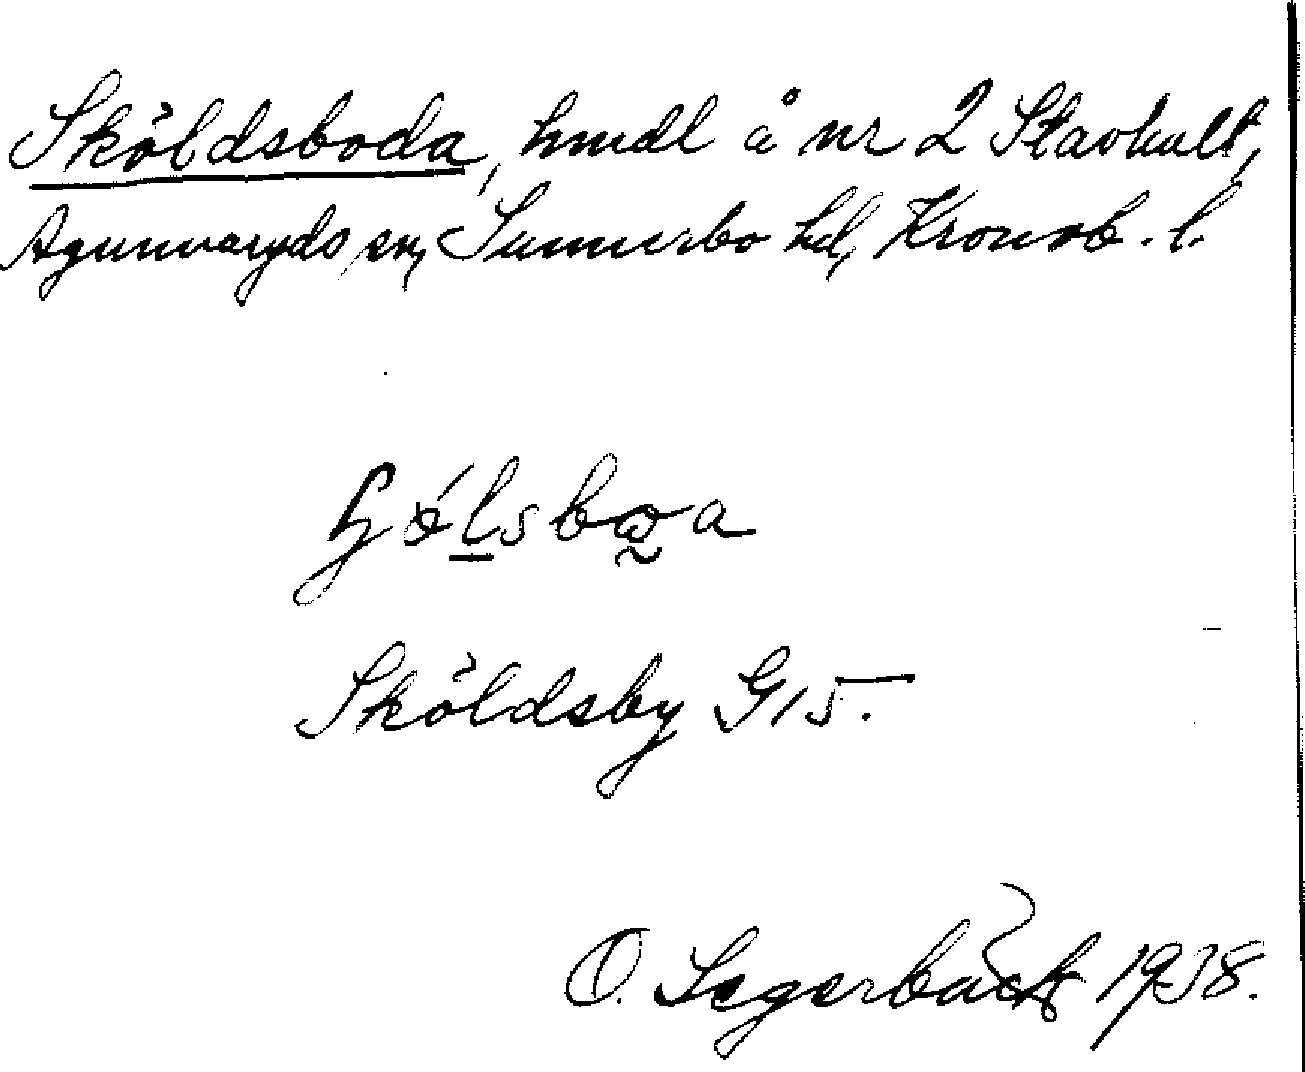 Sköldsboda, hmdl å nr 2 Stavhult,
Agunnaryds sn, Sunnerbo hd, Kronob. l.
Sköldsby G15.
O. Segerbäck 1938.